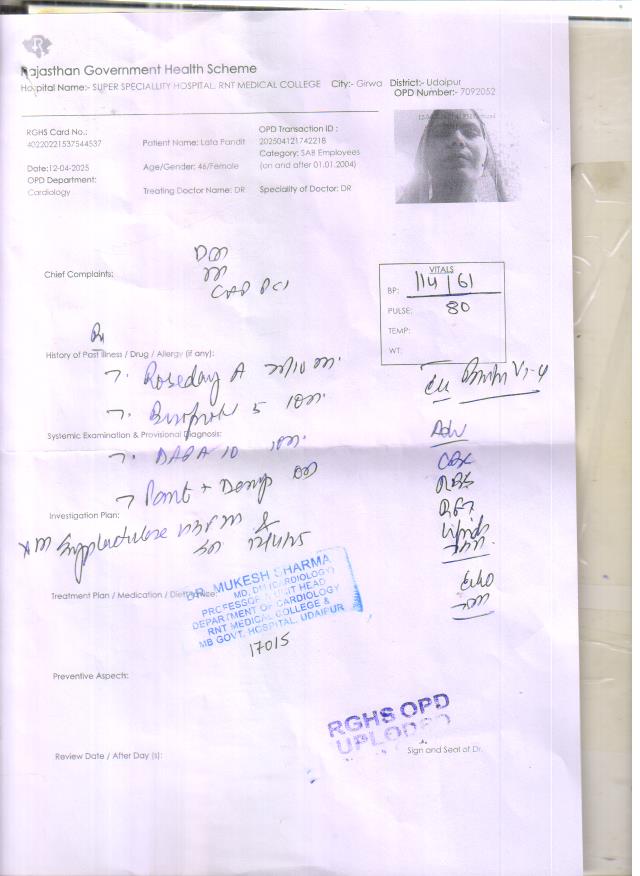 Rajasthan Government Health Scheme
Hospital Name:- SUPER SPECIALLITY HOSPITAL, RNT MEDICAL COLLEGE City:- Girwa District:- Udaipur
OPD Number:- 7092052
RGHS Card No.:
40220221537544537
Patient Name: Lata Pandit
OPD Transaction ID :
202504121742218
Date:12-04-2025
Age/Gender: 46/Female
Category: SAB Employees
(on and after 01.01.2004)
OPD Department:
Cardiology
Treating Doctor Name: DR
Speciality of Doctor: DR
Chief Complaints:
DM
CAD PCI
VITALS
BP: 114/61
PULSE: 80
TEMP:
WT:
Rx
History of Past Illness / Drug / Allergy (if any):
Roseday A
5
Systemic Examination & Provisional Diagnosis:
DAPA 10
Pant + Domp OD
Investigation Plan:
Syp lactulose
12/4/25
Adv
CBC
RBS
RFT
Lipids
Echo
Treatment Plan / Medication / Diet Advice:
DR. MUKESH SHARMA
MD, DM (CARDIOLOGY)
PROFESSOR & UNIT HEAD
DEPARTMENT OF CARDIOLOGY
RNT MEDICAL COLLEGE &
MB GOVT. HOSPITAL, UDAIPUR
17015
Preventive Aspects:
RGHS OPD
UPLODED
Sign and Seal of Dr.
Review Date / After Day (s):